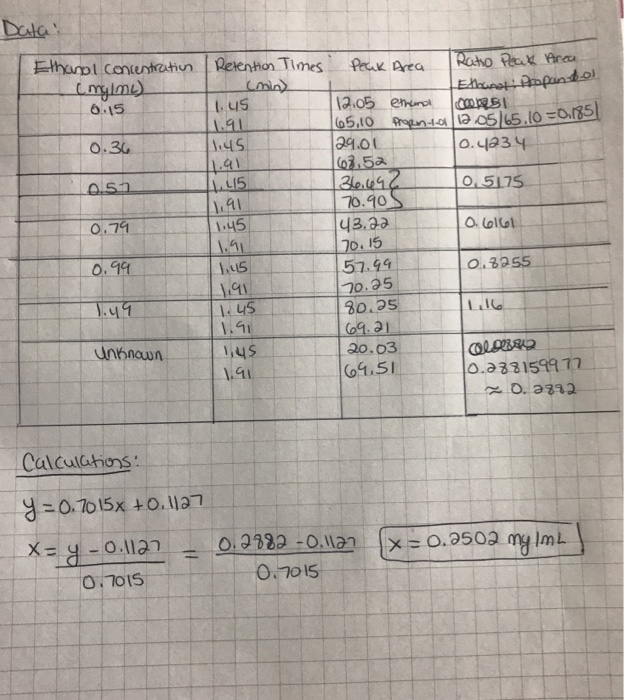 Data:
Ethanol Concentration (mg/mL) Retention Times (min) Peak Area Ratio Peak Area Ethanol: Propan-1-ol
0.15 1.45 12.05 ethanol
1.91 65.10 Propan-1-ol 12.05/65.10 = 0.1851
0.36 1.45 29.01 0.4234
1.91 68.52
0.57 1.45 36.69 0.5175
1.91 70.90
0.79 1.45 43.22 0.6161
1.91 70.15
0.99 1.45 57.99 0.8255
1.91 70.25
1.49 1.45 80.25 1.16
1.91 69.21
Unknown 1.45 20.03
1.91 69.51 0.288159977
≈ 0.2882
Calculations:
y = 0.7015x + 0.1127
x = y - 0.1127 / 0.7015 = 0.2882 - 0.1127 / 0.7015 x = 0.2502 mg/mL